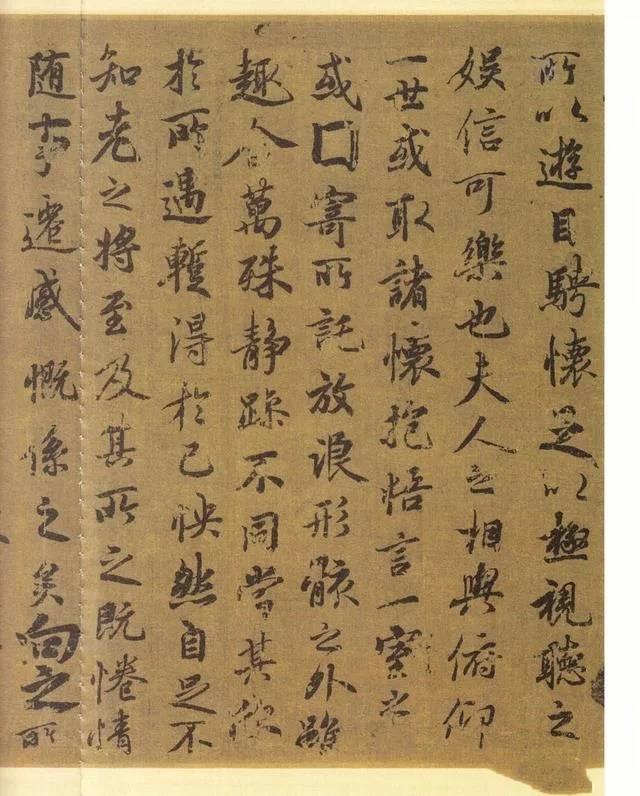 所以遊目騁懷足以極視聽之
娛信可樂也夫人之相與俯仰
一世或取諸懷抱悟言一室之
或囗寄所託放浪形骸之外雖
趣舍萬殊静躁不同當其欣
於所遇暫得於己怏然自足不
知老之将至及其所之既惓情
随事遷感慨係之矣向之所